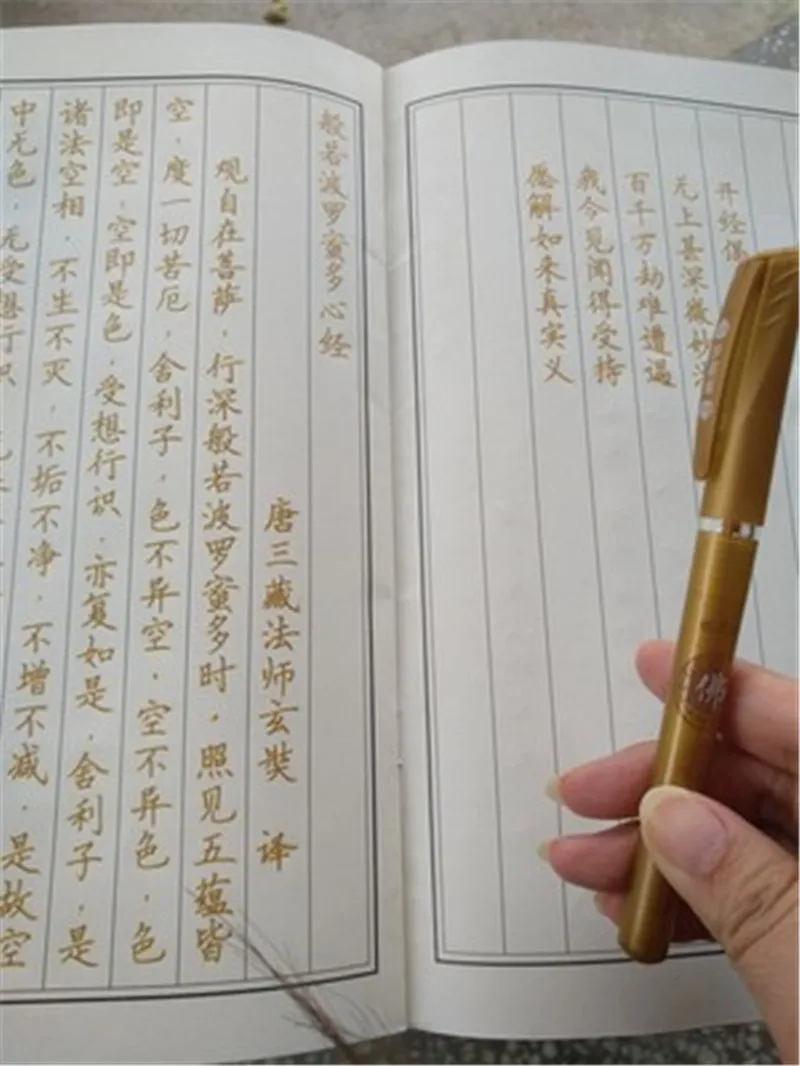 开经偈
无上甚深微妙法
百千万劫难遭遇
我今见闻得受持
愿解如来真实义
般若波罗蜜多心经
唐三藏法师玄奘 译
观自在菩萨，行深般若波罗蜜多时，照见五蕴皆
空，度一切苦厄，舍利子，色不异空，空不异色，色
即是空，空即是色，受想行识，亦复如是，舍利子，是
诸法空相，不生不灭，不垢不净，不增不减，是故空
中无色，无受想行识
佛